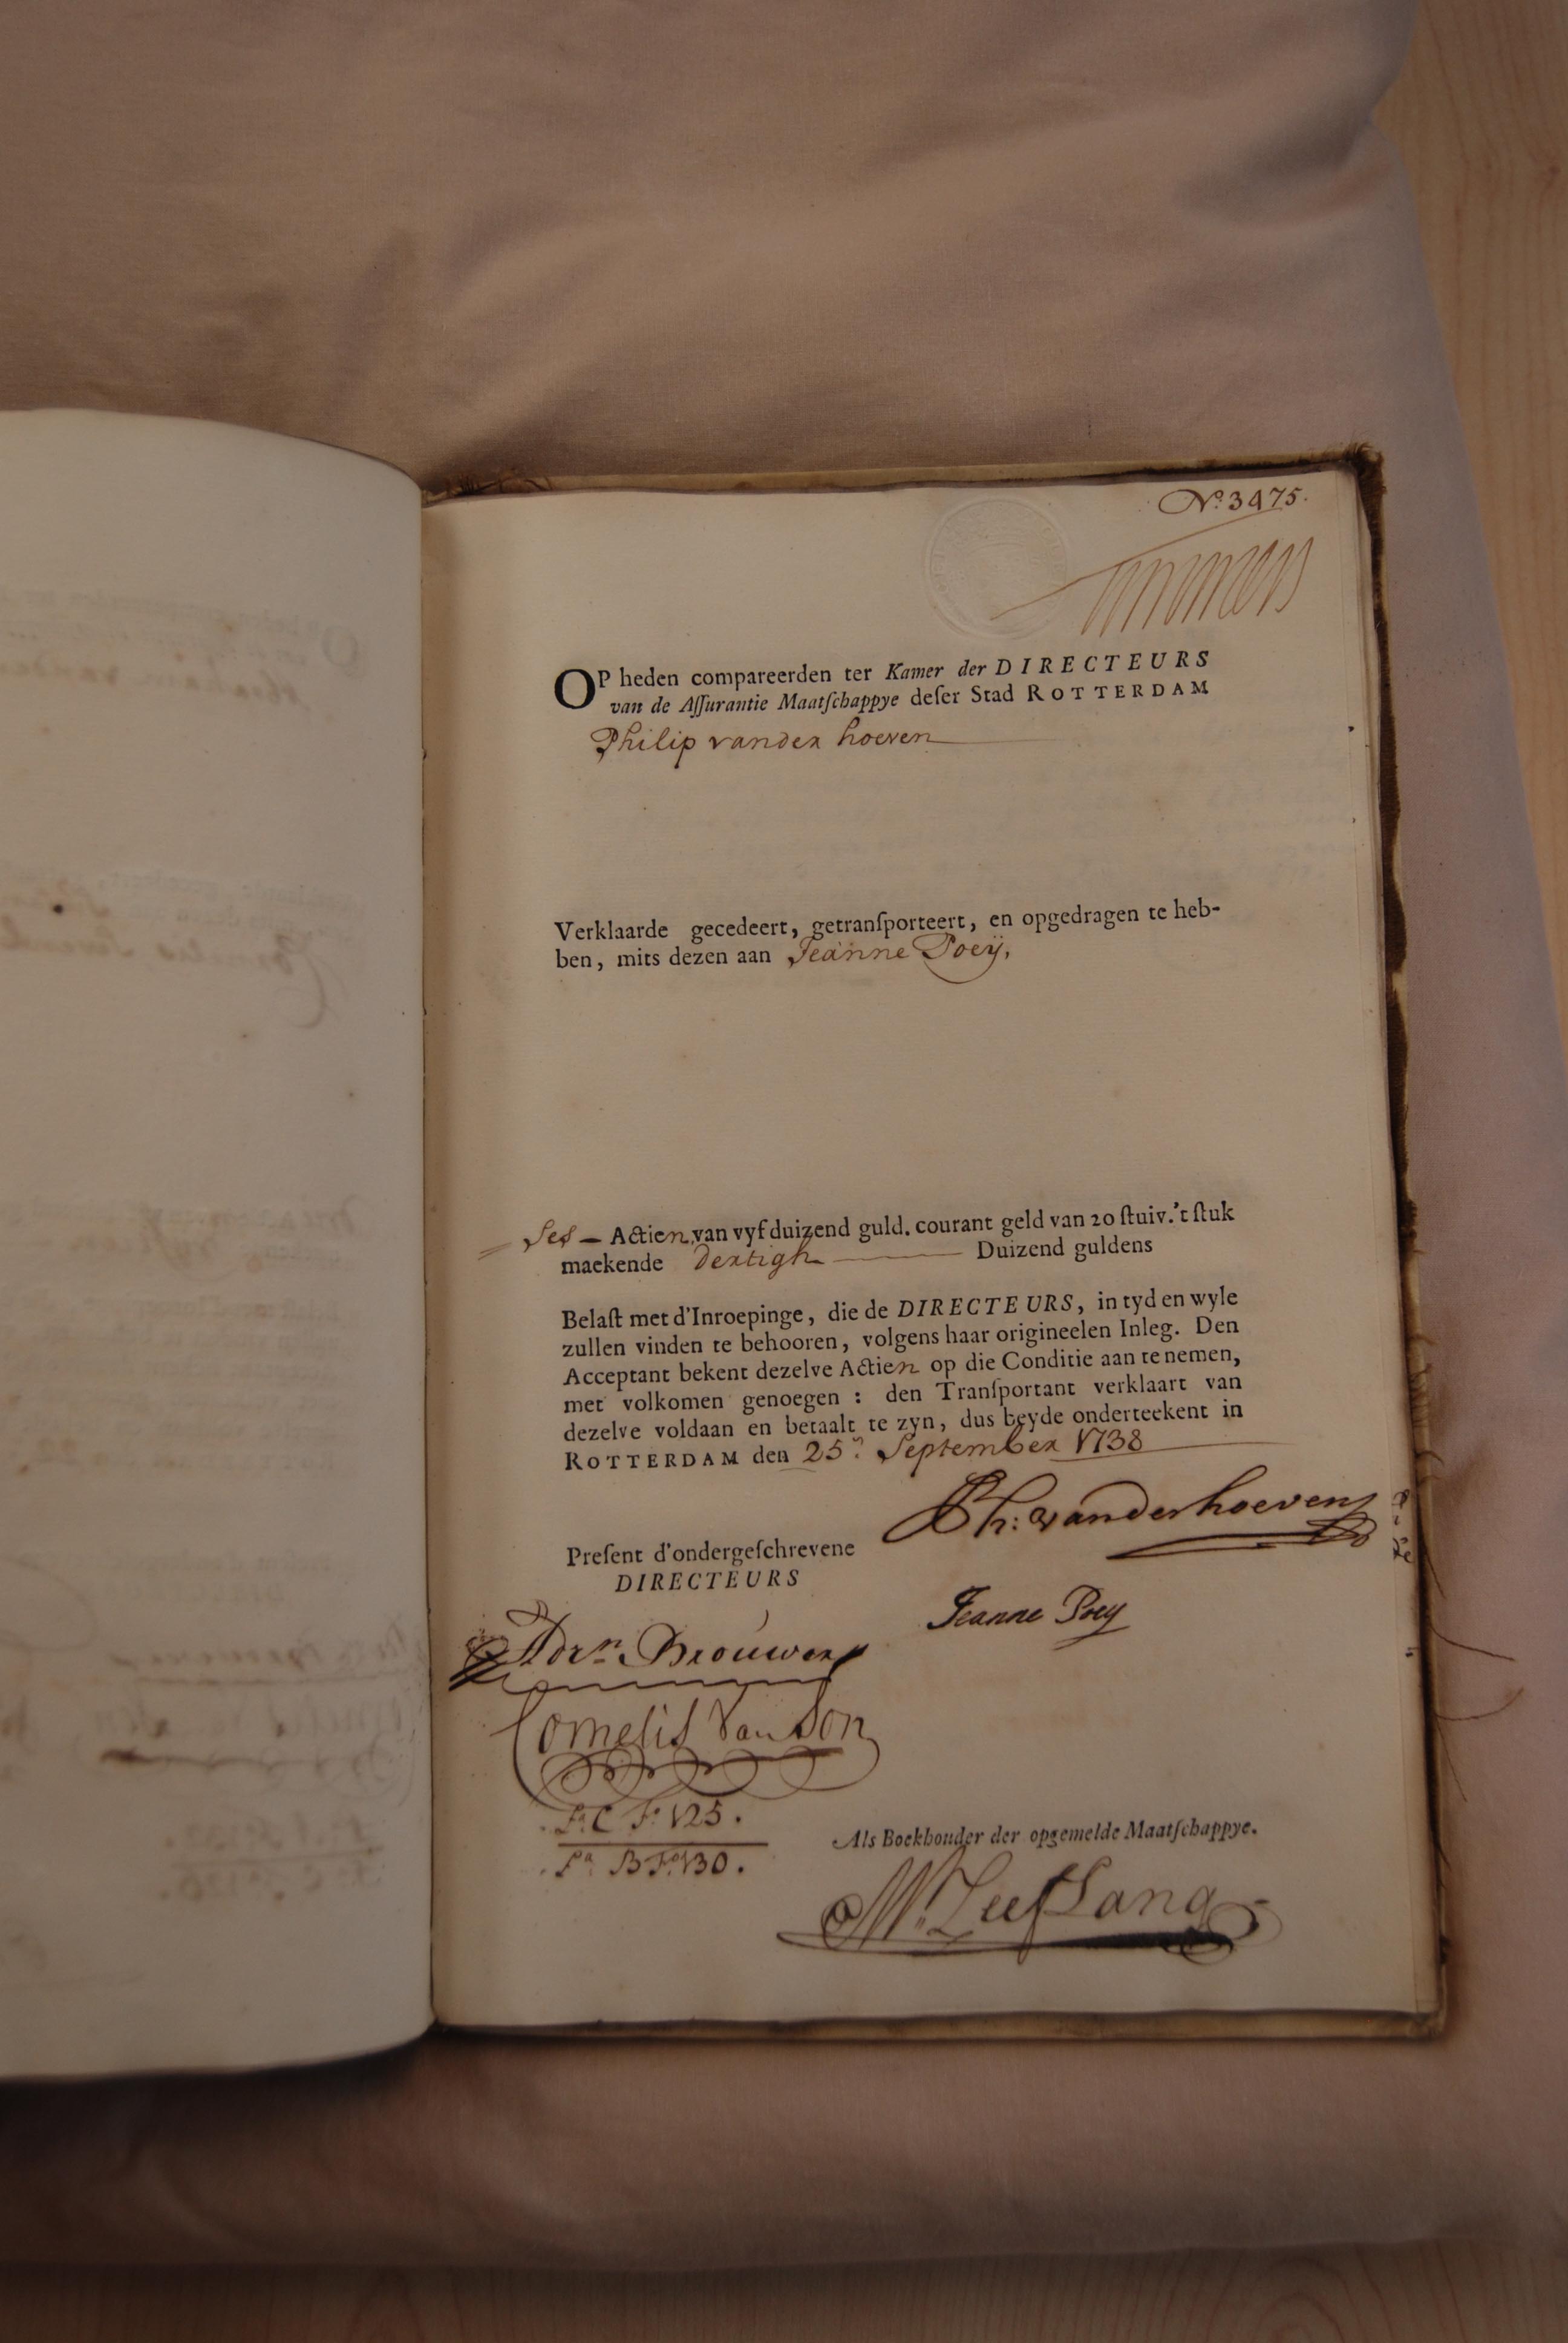 Nº. 3475.
OP heden compareerden ter Kamer der DIRECTEURS
van de Aſſurantie Maatſchappye deſer Stad ROTTERDAM
Philip vander hoeven
Verklaarde gecedeert, getranſporteert, en opgedragen te heb-
ben, mits dezen aan Jeanne Poeÿ,
Ses — Actien van vyf duizend guld. courant geld van 20 ſtuiv. 't ſtuk
maekende dertigh Duizend guldens
Belaſt met d'Inroepinge, die de DIRECTEURS, in tyd en wyle
zullen vinden te behooren, volgens haar origineelen Inleg. Den
Acceptant bekent dezelve Actien op die Conditie aan te nemen,
met volkomen genoegen : den Tranſportant verklaart van
dezelve voldaan en betaalt te zyn, dus beyde onderteekent in
ROTTERDAM den 25n. September 1738
Ph: vanderhoeven
Preſent d'ondergeſchrevene
DIRECTEURS
Jeanne Poey
Adrn. Brouwer
Cornelis Van Son
La. C Fo. 125.
La B Fo. 130.
Als Boekhouder der opgemelde Maatſchappye.
M. Leefsang